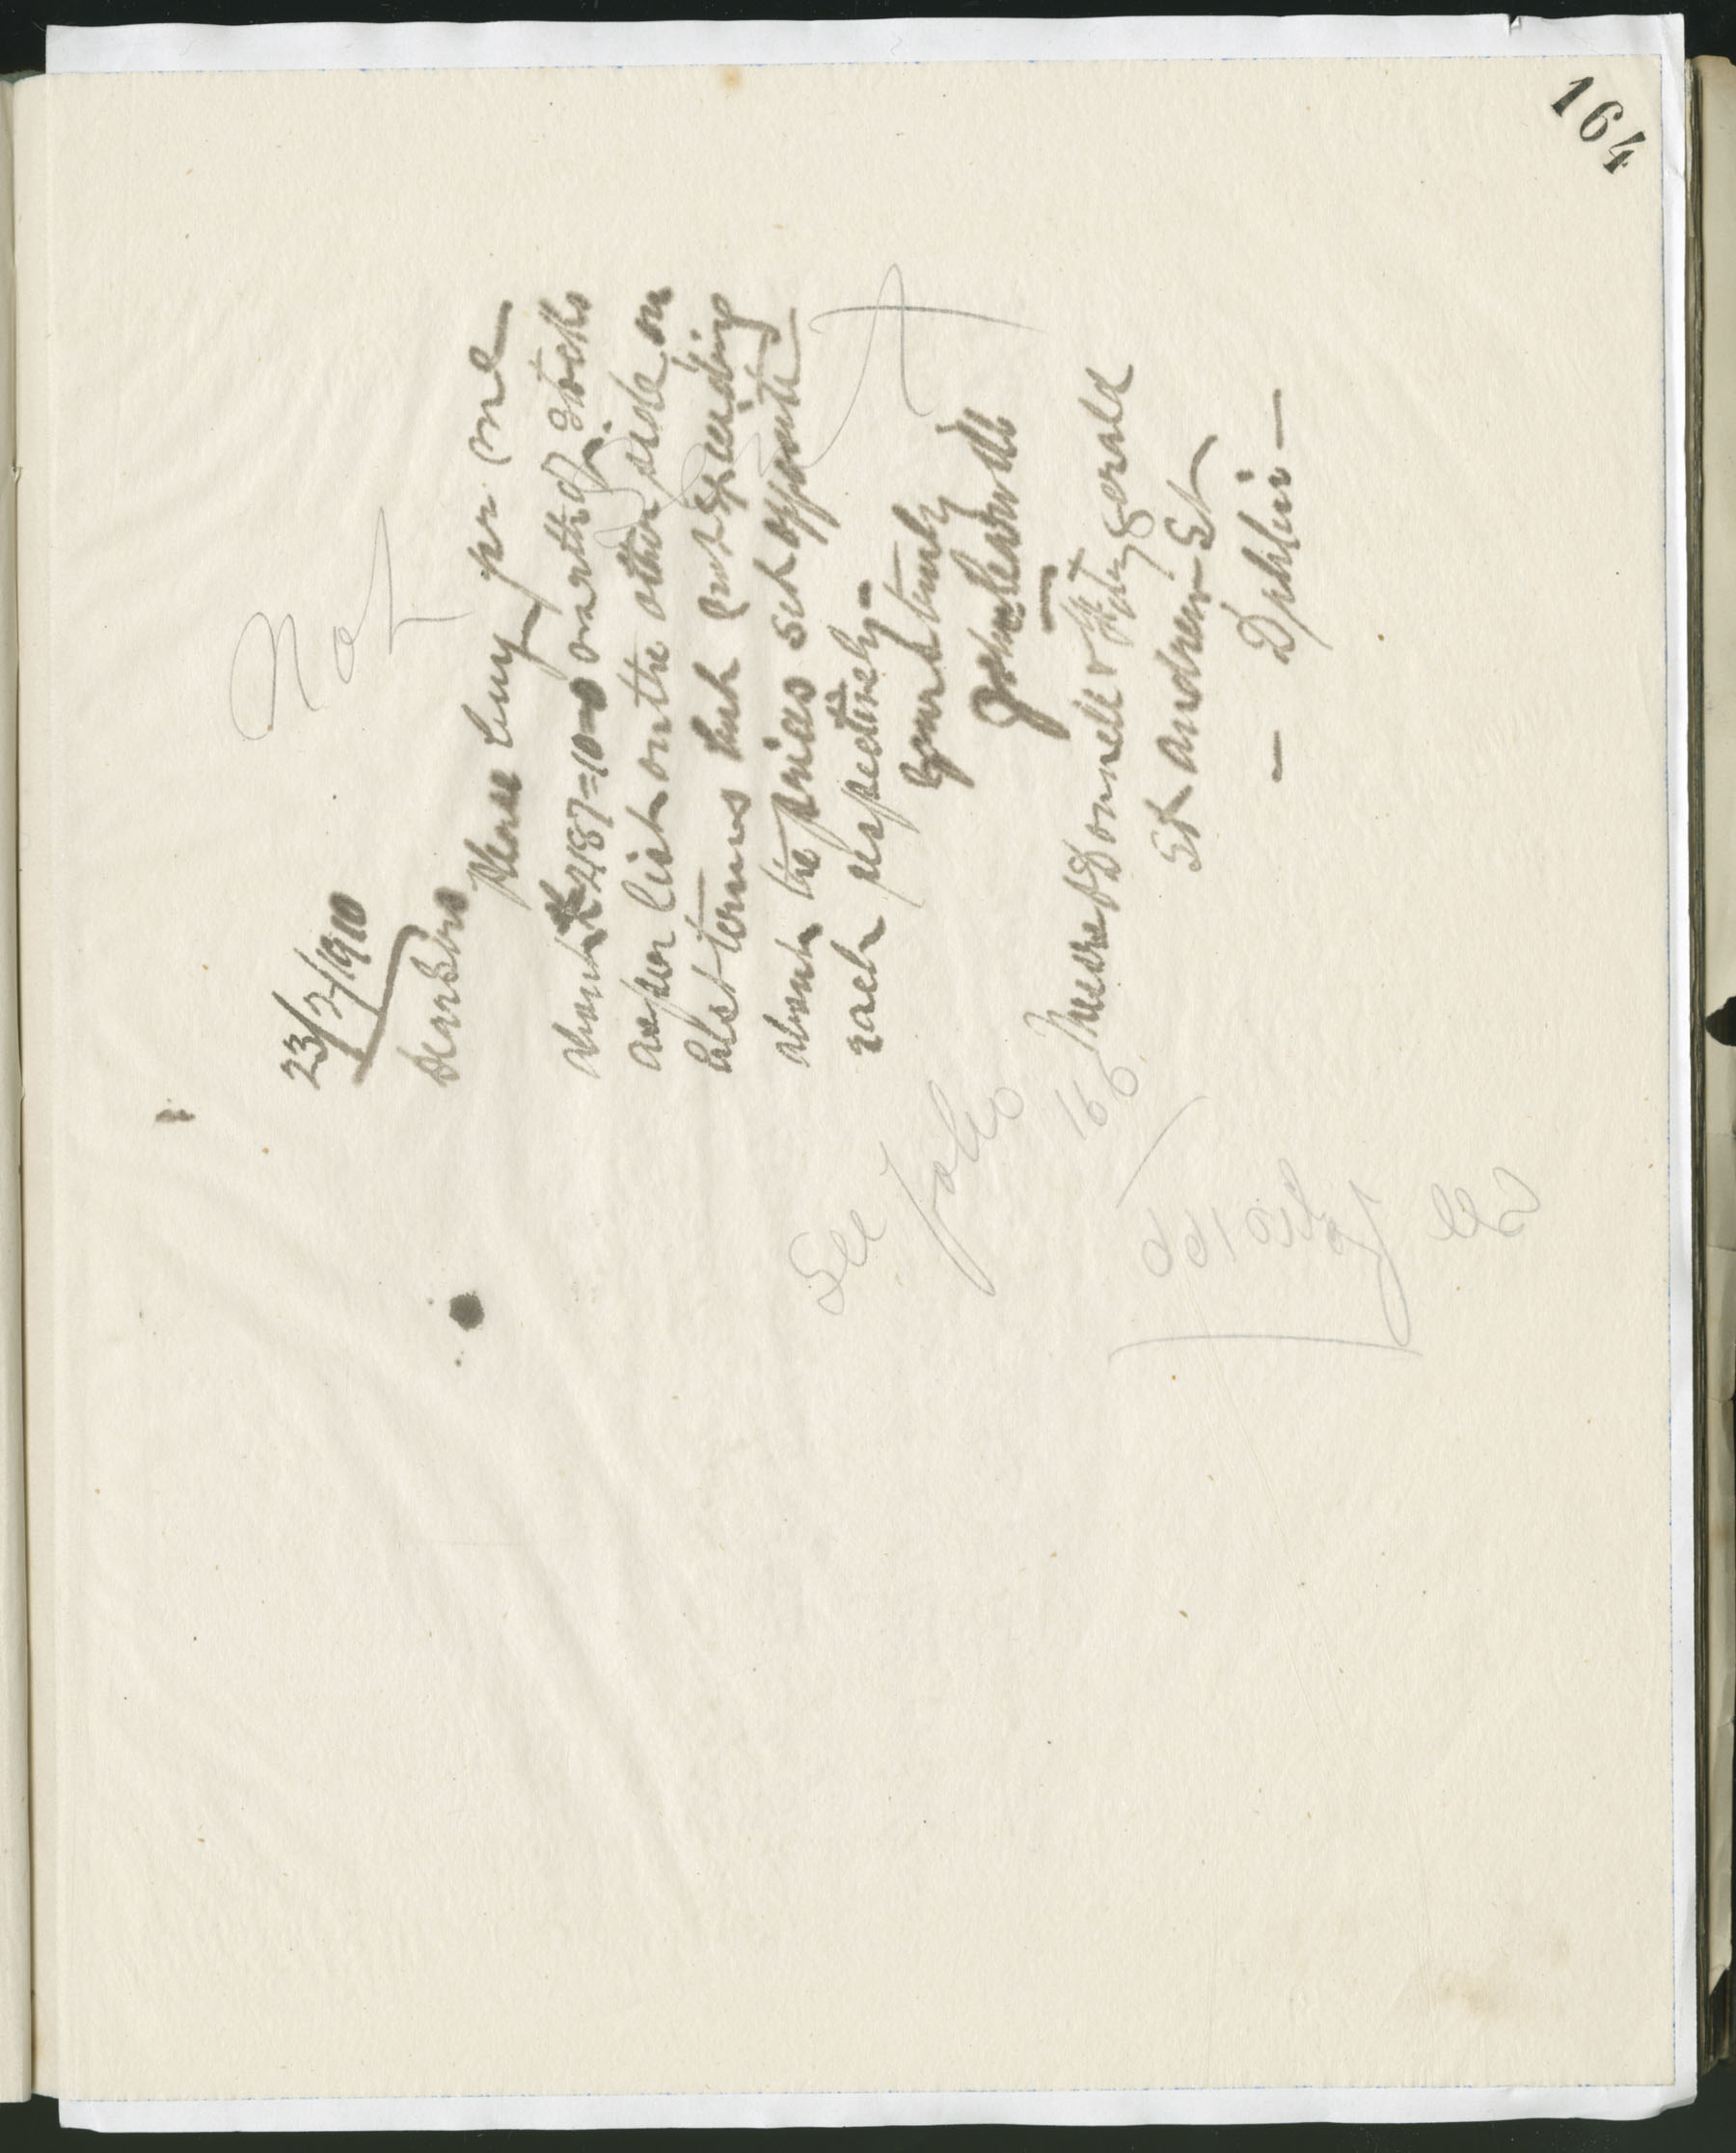 164
Not
23/2/1910
Dear Sirs
Please buy for me
about £2187=10=0 worth of Stocks
as per list on the other side on
best terms but not exceeding
about the prices set opposite
each respectively.
Yours truly
Messrs O'Donnell & Fitzgerald
St Andrew St
— Dublin —
See folio 166
See folio 166